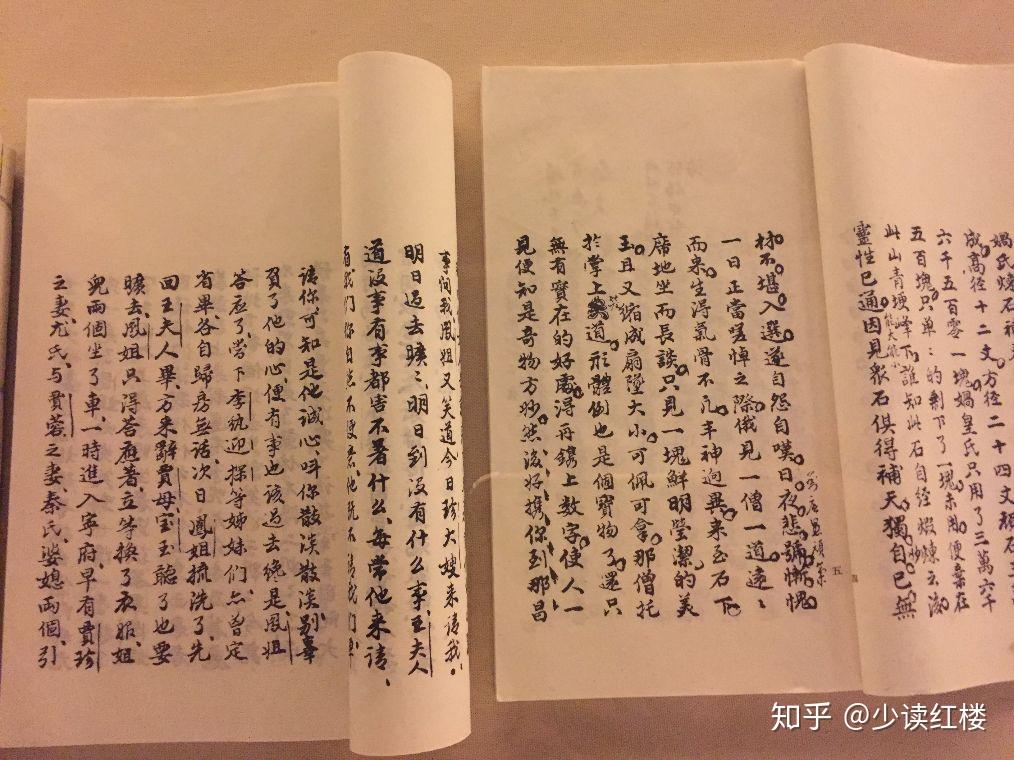 媧氏煉石
成高徑十二丈方徑二十四丈頑石
六千五百零一塊媧皇氏只用了三萬六千
五百塊只單〻的剩下了一塊未用便棄在
此山青埂峰下誰知此石自經煅煉之後
靈性已通因見衆石俱得補天獨自己無
五
材不堪入選遂自怨自嘆日夜悲號慚愧
一日正當嗟悼之際俄見一僧一道遠〻
而來生得氣骨不凡丰神迥異來至石下
席地坐而長談只見一塊鮮明瑩潔的美
玉且又縮成扇墜大小可佩可拿那僧托
於掌上笑道形體倒也是個寶物了還只
無有實在的好處得再鐫上數字使人一
見便知是奇物方妙然後好攜你到那昌
事問我鳳姐又笑道今日珍大嫂來請我
明日過去曠〻明日到沒有什么事王夫人
道沒事有事都害不着什么每常他來請
有我們你自然不便意他既不請我們單
請你可知是他誠心呌你散淡散淡別辜
負了他的心便有事也該過去纔是鳳姐
答應了當下李紈迎探等姊妹們亦曾定
省畢各自歸房無話次日鳳姐梳洗了先
回王夫人畢方來辭賈母宝玉聽了也要
曠去鳳姐只得答應著立等換了衣服姐
兒兩個坐了車一時進入寧府早有賈珍
之妻尤氏与賈蓉之妻秦氏婆媳兩個引
知乎 @少读红楼